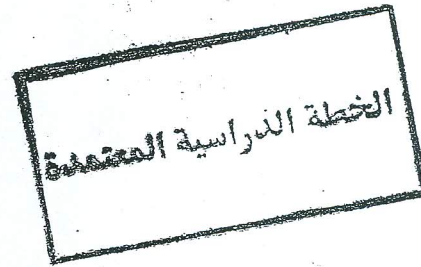 الخطة الدراسية المعتمدة